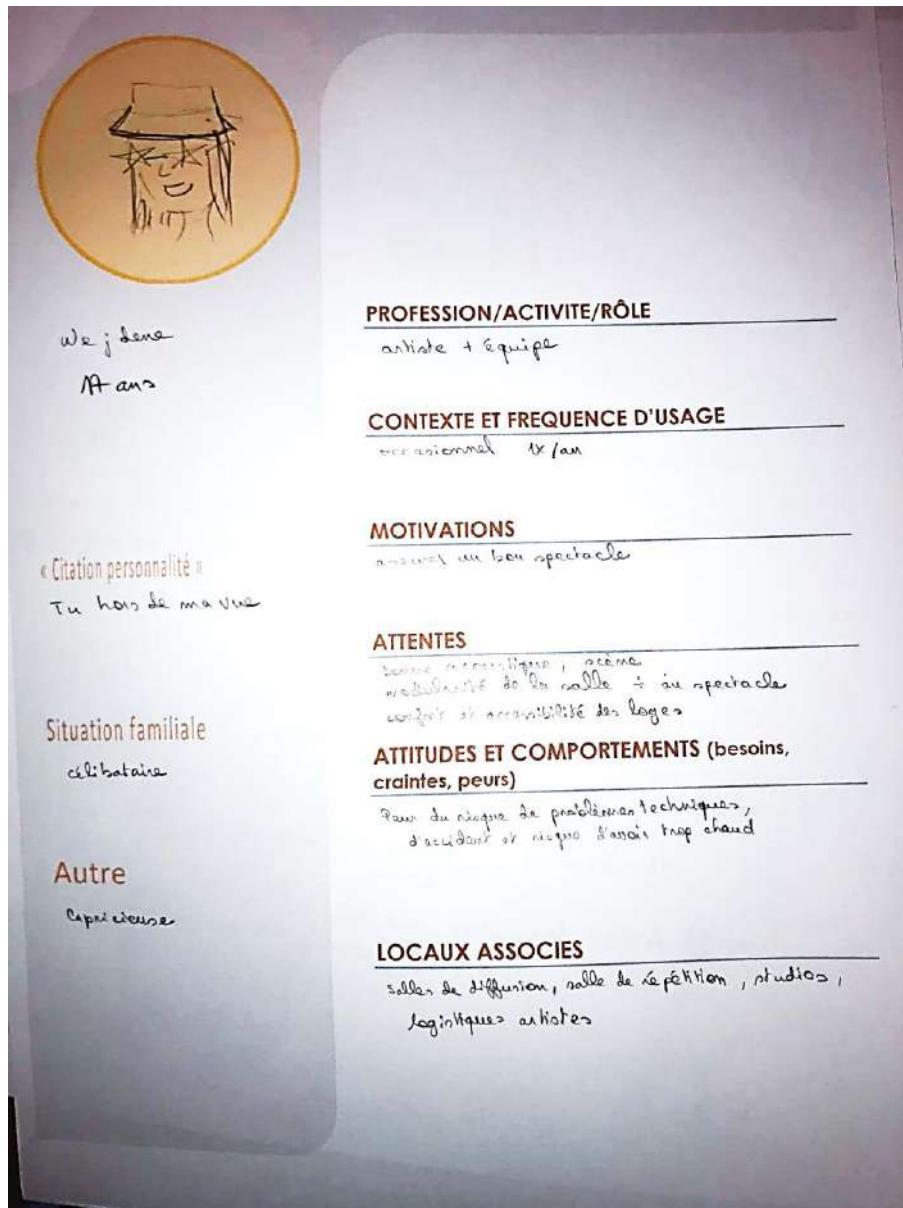 Wejdene
17 ans
« Citation personnalité »
Tu hors de ma vue
Situation familiale
célibataire
Autre
Capricieuse
PROFESSION/ACTIVITE/RÔLE
artiste + équipe
CONTEXTE ET FREQUENCE D'USAGE
occasionnel 1x/an
MOTIVATIONS
assurer un bon spectacle
ATTENTES
bonne acoustique, scène
modularité de la salle ÷ au spectacle
confort et accessibilité des loges
ATTITUDES ET COMPORTEMENTS (besoins,
craintes, peurs)
Peur du risque de problèmes techniques,
d'accident et risque d'avoir trop chaud
LOCAUX ASSOCIES
salles de diffusion, salle de répétition, studios,
logistiques artistes